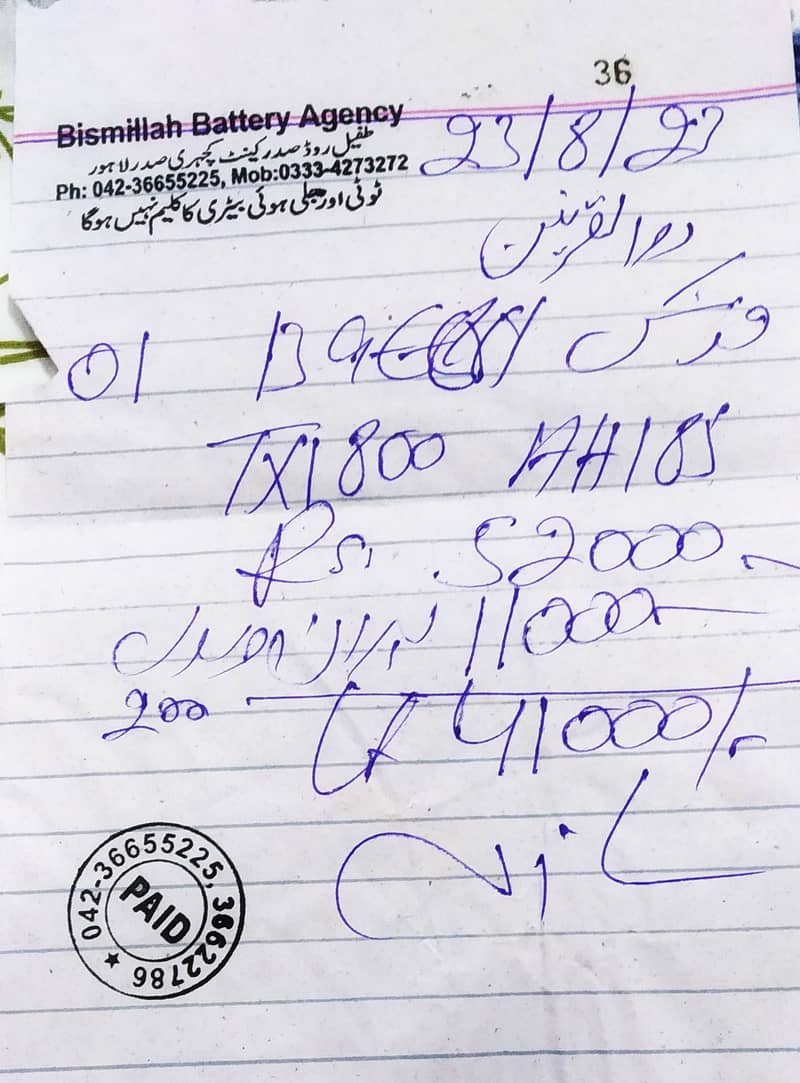 36
Bismillah Battery Agency
طفیل روڈ صدر کینٹ کچہری صدر لاہور
Ph: 042-36655225, Mob:0333-4273272
ٹوٹی اور جلی ہوئی بیٹری کا کلیم نہیں ہوگا
23/8/23
ذوالقرنین
01
TX1800 AH185
Rs. 52000
پرانی 11000
200
41000/-
042-36655225, 36622786
PAID